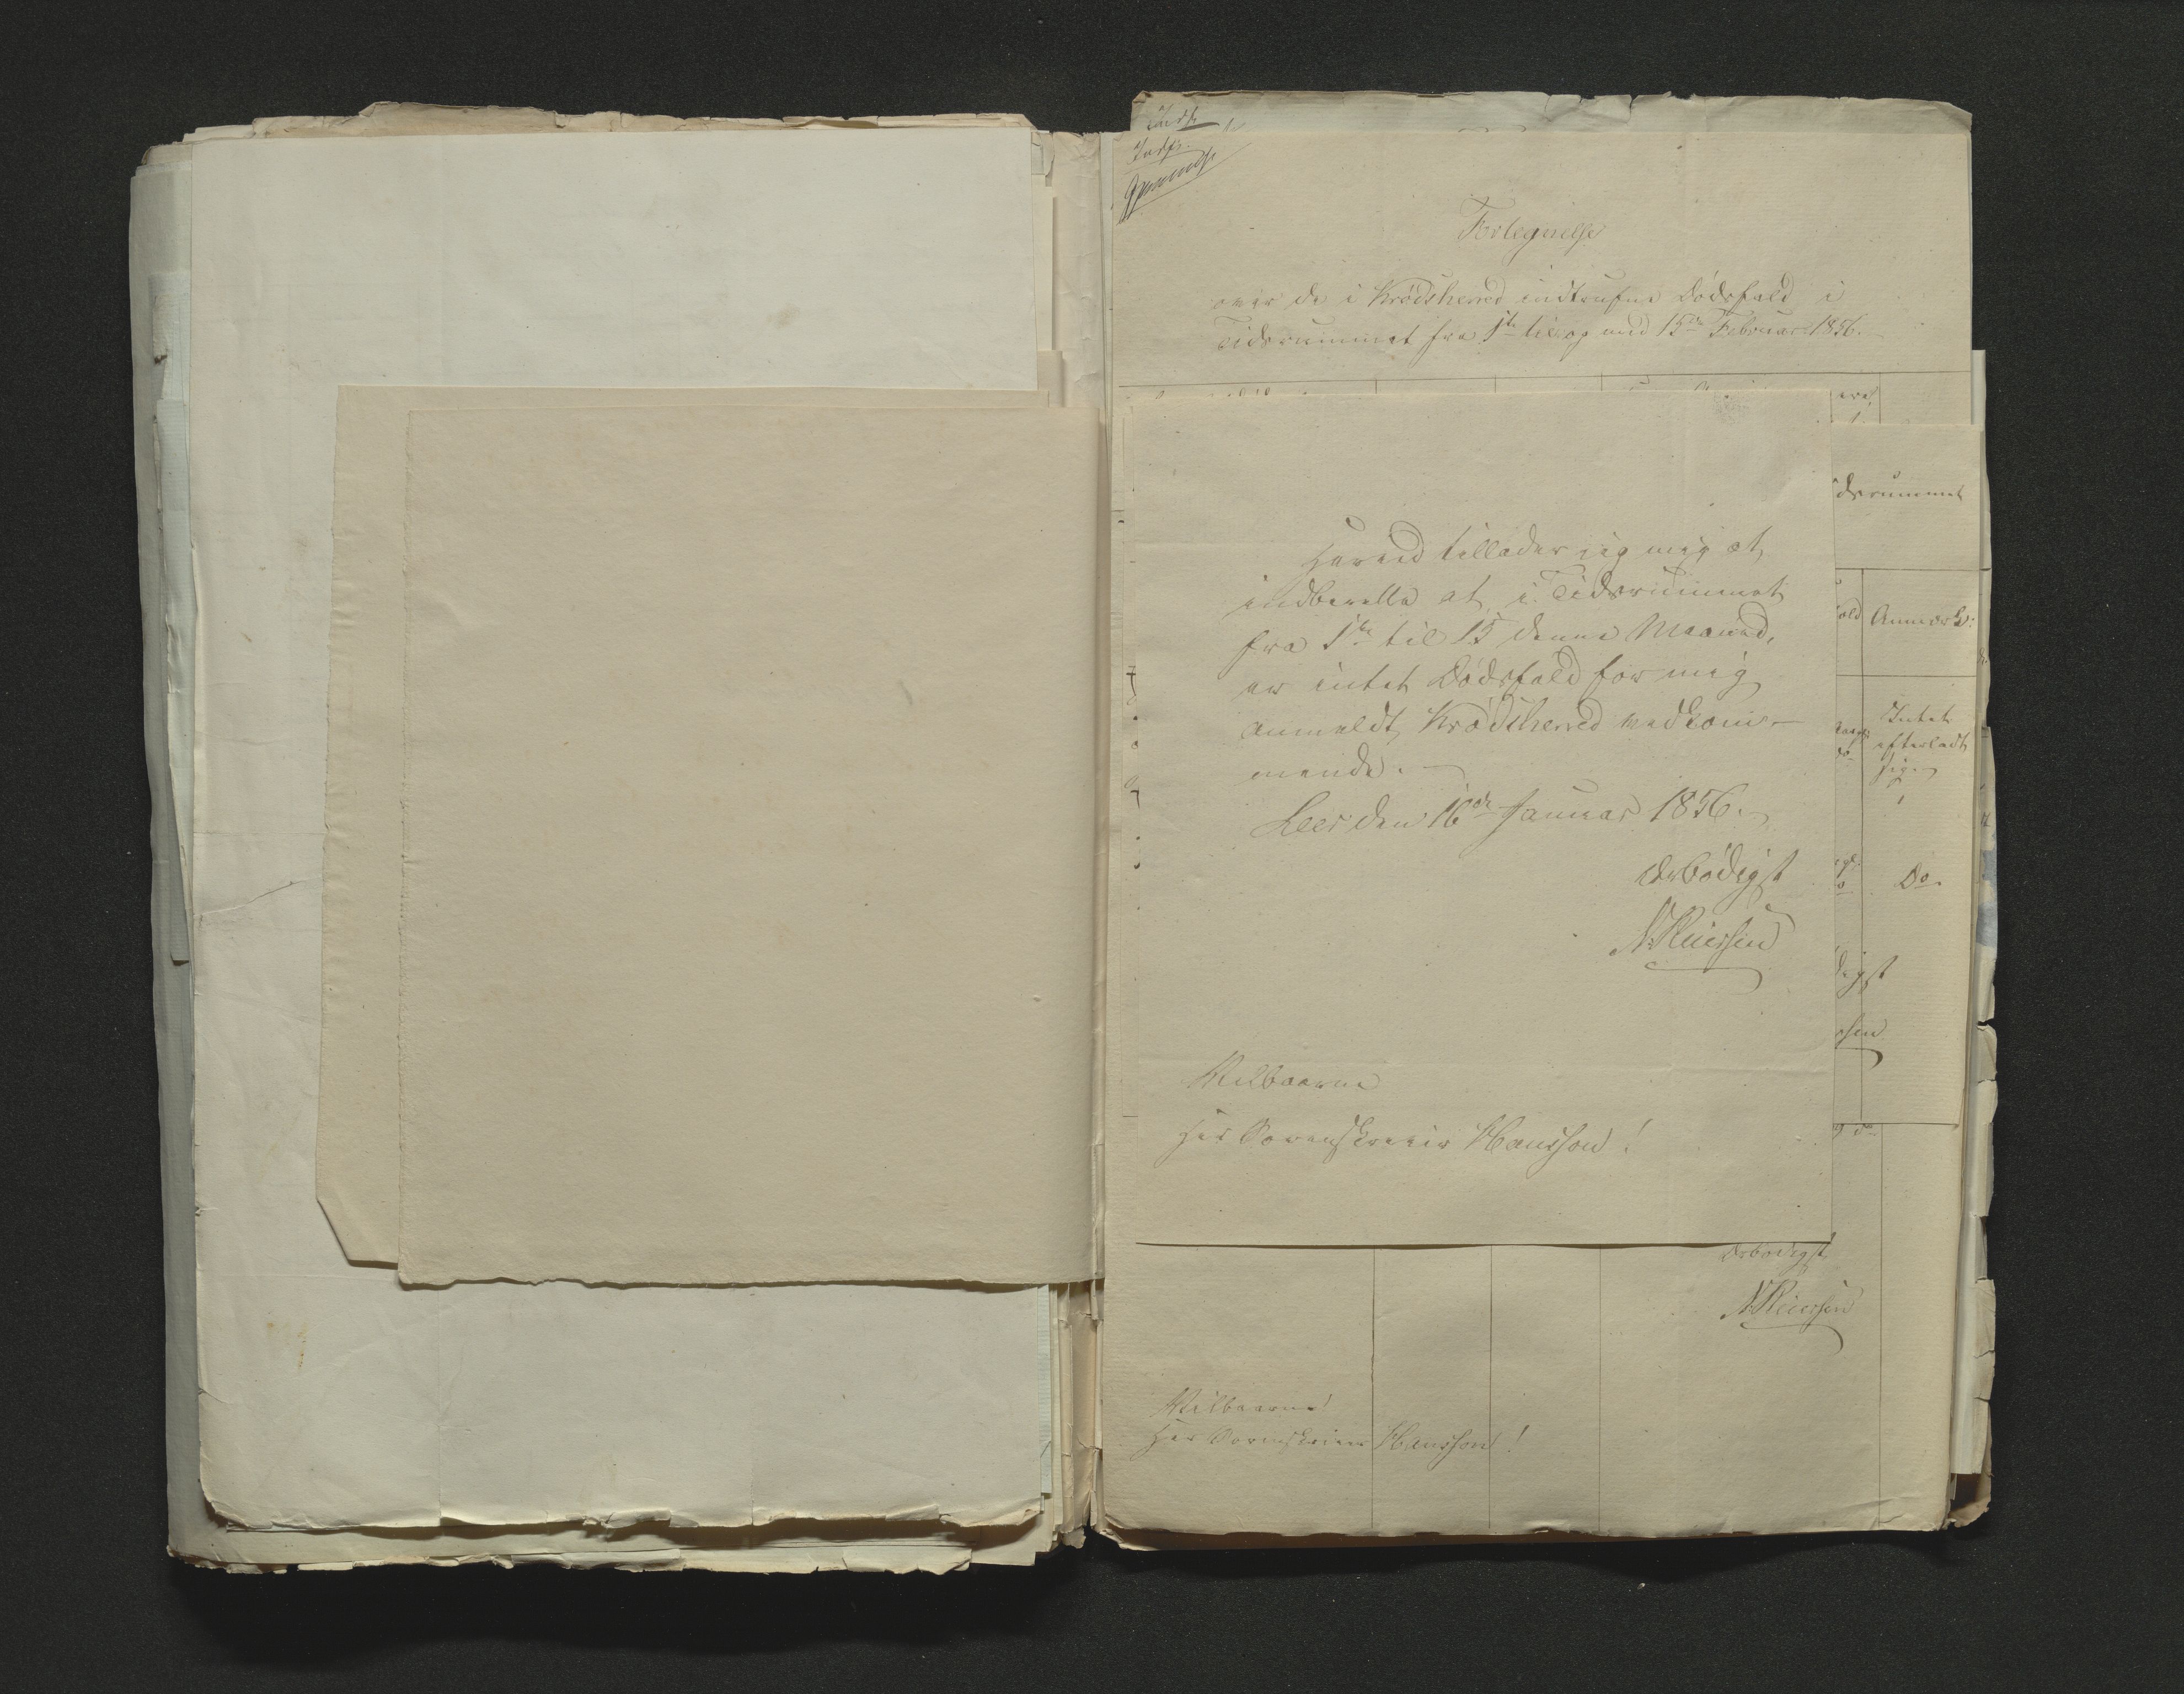 Fortegnelse
over de i Krødsherred indtrufne Dødsfald i
Tidsrummet fra 1ste til og med 15de Februar 1856.
dsrummet
Anmærk:
Herved tillader jeg mig at
indberette at i Tidsrummet
fra 1ste til 15 denne Maaned,
er intet Dødsfald for mig
anmeldt, Krødsherred vedkom-
mende.
Leer den 16de Januar 1856.
Ærbødigst
N. Reiersen
Velbaarne
Her Sorenskriver Hansson!
Intet
efterladt
sig.
Do.
Ærbødigst
N. Reiersen
Velbaarne!
Her Sorenskriver Hansson!